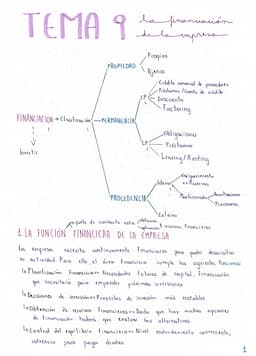 TEMA 9
la financiación
de la empresa
PROPIEDAD
Propios
Ajenos
FINANCIACIÓN → Clasificación
PERMANENCIA
CP
Crédito comercial de proveedores
Préstamos / Cuenta de crédito
Descuento
Factoring
LP
Obligaciones
Préstamos
Leasing / Renting
Invertir
PROCEDENCIA
Interna
Enriquecimiento
→ Reservas
Mantenimiento
Amortizaciones
Provisiones
Externa
punto de contacto entre
recursos financieros
1. LA FUNCIÓN FINANCIERA DE LA EMPRESA
La empresa necesita continuamente financiarse para poder desarrollar
su actividad. Para ello, el área financiera cumple las siguientes funciones:
Planificación financiera → Necesidades futuras de capital, financiación
que necesitará para emprender próximas inversiones
Decisiones de inversión → Proyectos de inversión más rentables
Obtención de recursos financieros → Dado que hay muchas opciones
de financiación habrá que evaluar las alternativas
Control del equilibrio financiero → Nivel endeudamiento conveniente,
solvencia para pagar deudas
1